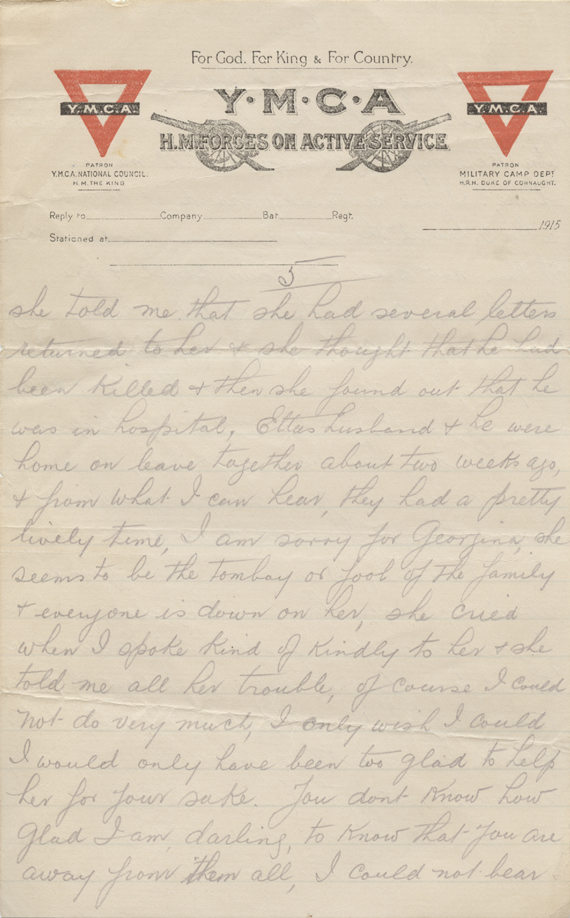 For God. For King & For Country.
Y·M·C·A
H.M. FORCES ON ACTIVE SERVICE
Y.M.C.A.
PATRON
Y.M.C.A. NATIONAL COUNCIL.
H.M. THE KING
Y.M.C.A.
PATRON
MILITARY CAMP DEPT
H.R.H. DUKE OF CONNAUGHT.
Reply to Company Bat. Regt.
Stationed at
1915
5
she told me that she had several letters
returned to her & she thought that he had
been killed & then she found out that he
was in hospital, Ettas husband & he were
home on leave together about two weeks ago,
& from what I can hear, they had a pretty
lively time, I am sorry for Georgina, she
seems to be the tomboy or fool of the family
& everyone is down on her, she cried
when I spoke kind of kindly to her & she
told me all her trouble, of course I could
not do very much, I only wish I could
I would only have been too glad to help
her for your sake. You dont know how
glad I am, darling, to know that you are
away from them all, I could not bear